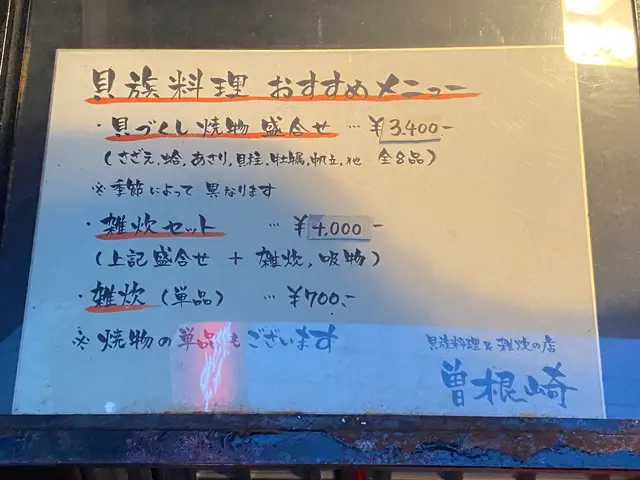 貝族料理 おすすめメニュー
・貝づくし焼物盛合せ … ¥3,400-
(さざえ,蛤,あさり,貝柱,牡蠣,帆立,他 全8品)
※季節によって異なります
・雑炊セット … ¥4,000-
(上記盛合せ + 雑炊,吸物)
・雑炊(単品) … ¥700.-
※焼物の単品もございます
貝族料理&雑炊の店
曽根崎